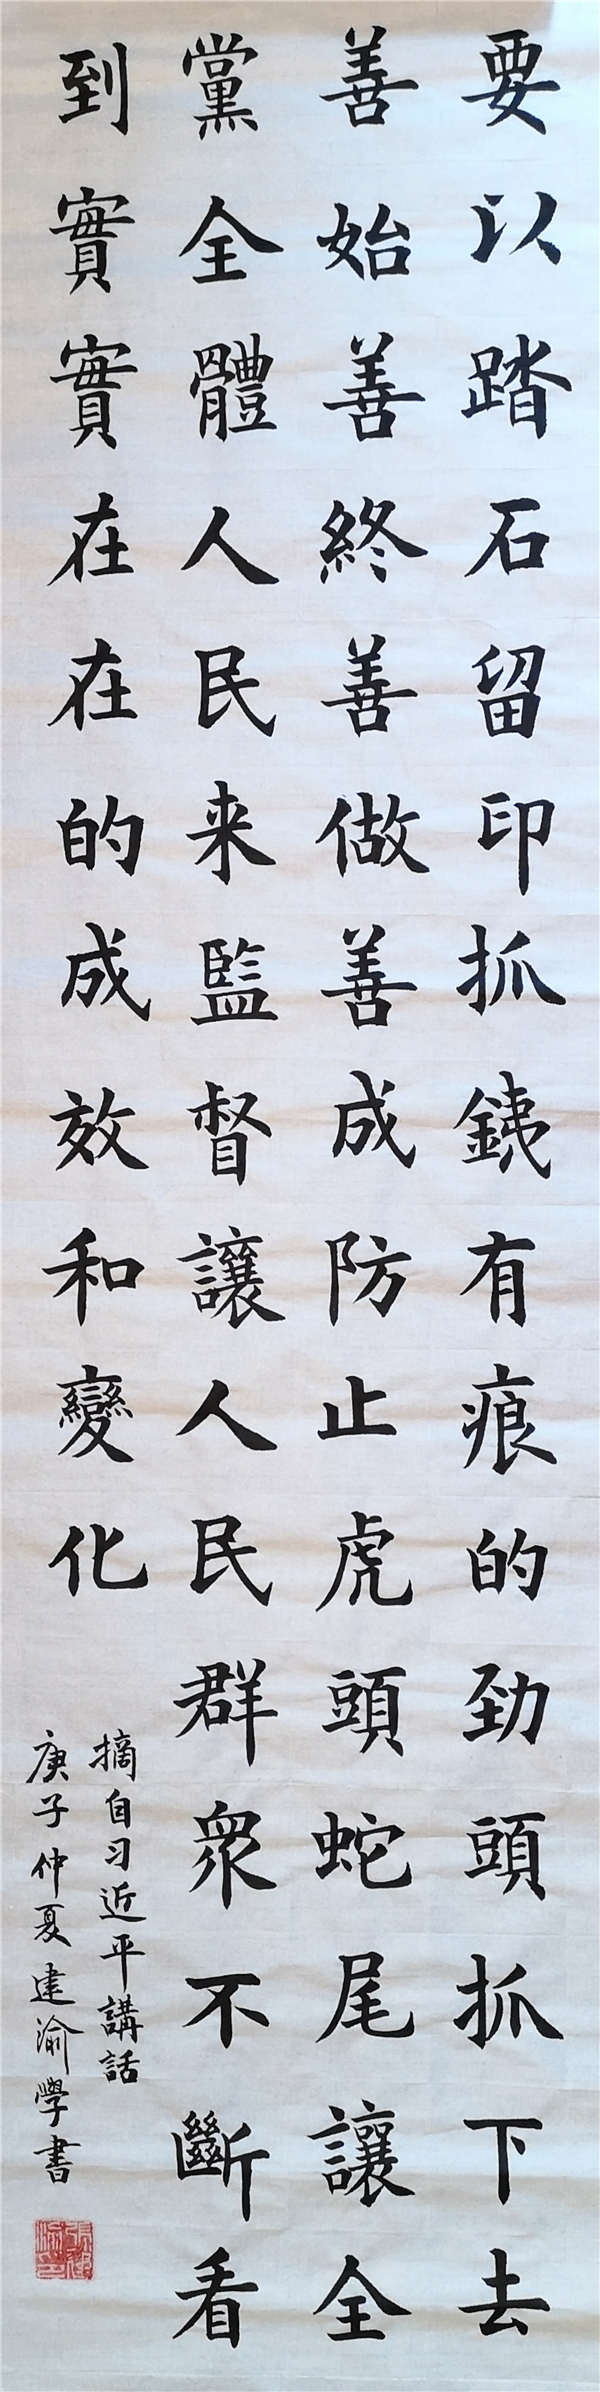 要以踏石留印抓銕有痕的劲頭抓下去
善始善終善做善成防止虎頭蛇尾讓全
黨全體人民来監督讓人民群衆不斷看
到實實在在的成效和變化
摘自习近平講話
庚子仲夏建渝學書